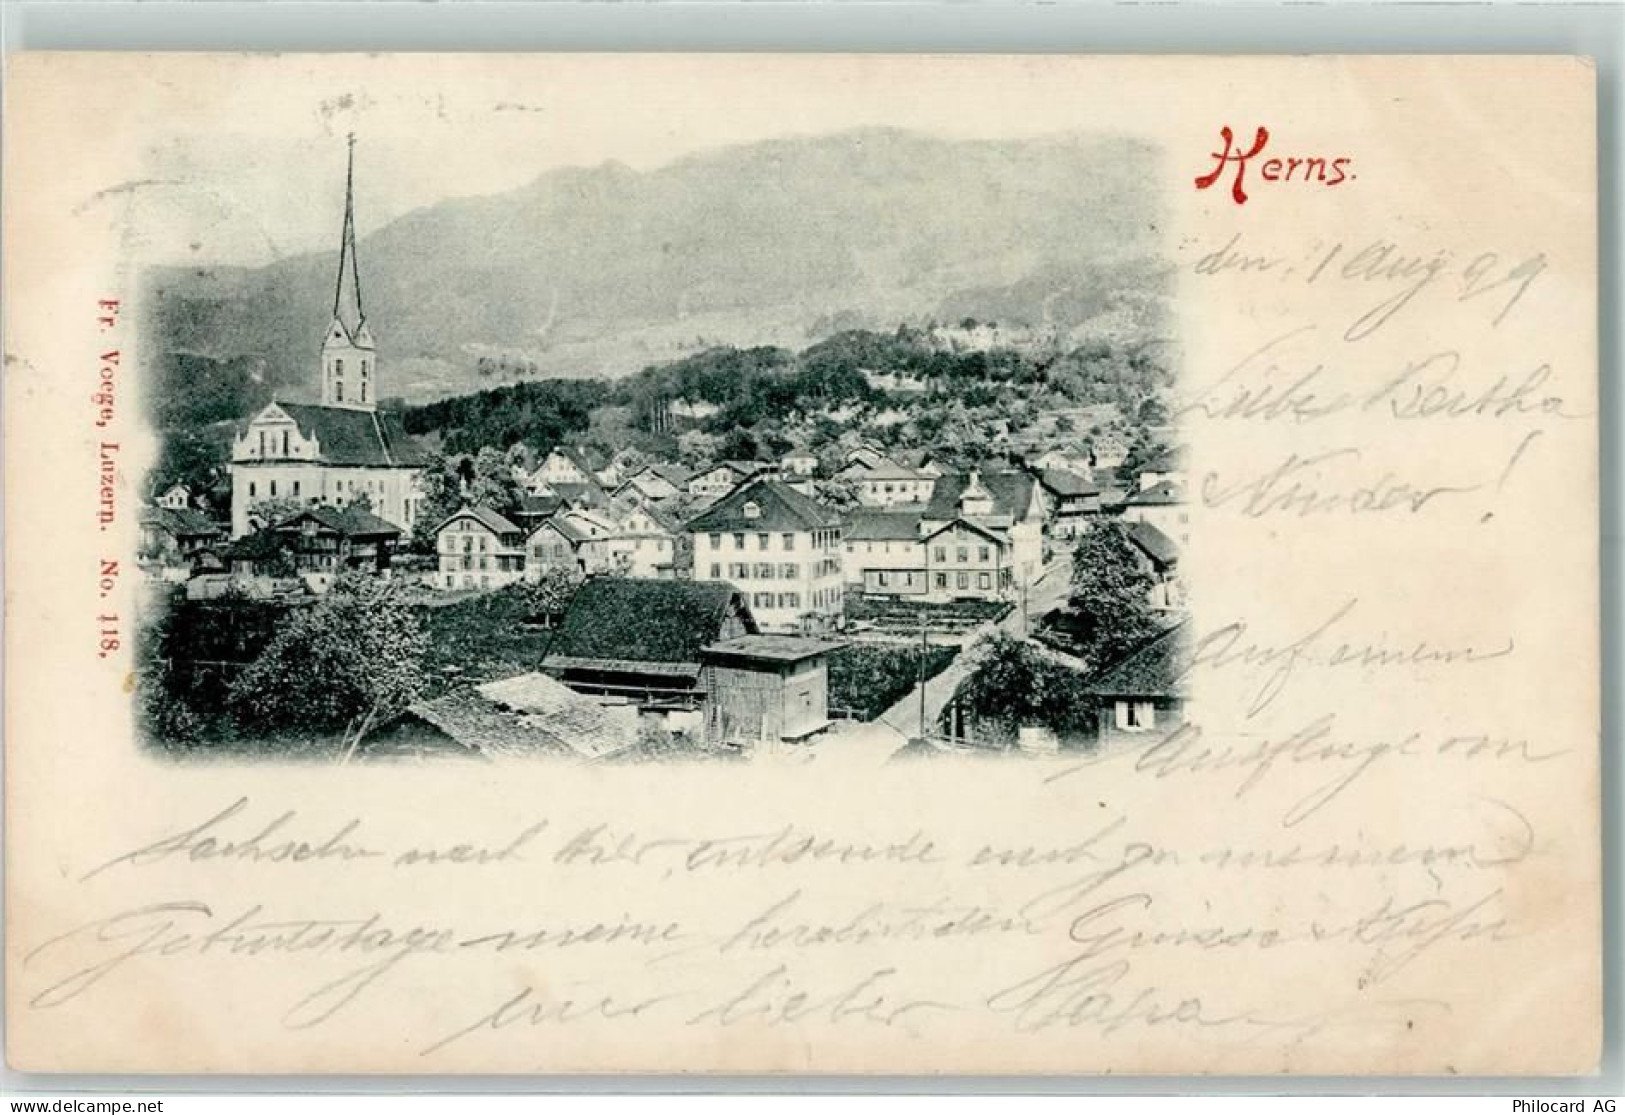 Kerns.
den 1 Aug 99
Liebe Bertha
Kinder!
Auf einem
Ausfluge von
Sachseln nach hier, entsende euch zu meinem
Geburtstage meine herzlichsten Grüsse & Küsse
euer lieber Papa
Fr. Voege, Luzern. No. 118.
delcampe.net
Philocard AG